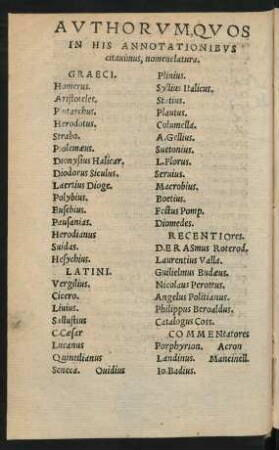 AVTHORVM, QVOS
IN HIS ANNOTATIONIBVS
citauimus, nomenclatura.
GRAECI.
Homerus.
Aristoteles.
Plutarchus.
Herodotus.
Strabo.
Ptolemæus.
Dionysius Halicar.
Diodorus Siculus.
Laertius Dioge.
Polybius.
Eusebius.
Pausanias.
Herodianus
Suidas.
Hesychius.
LATINI.
Vergilius.
Cicero.
Liuius.
Sallustius
C.Cæsar
Lucanus
Quintilianus
Seneca. Ouidius
Plinius.
Syllius Italicus.
Statius.
Plautus.
Columella.
A.Gellius.
Suetonius.
L.Florus.
Seruius.
Macrobius.
Boetius.
Festus Pomp.
Diomedes.
RECENTIores.
D.ERASmus Roterod.
Laurentius Valla.
Gulielmus Budæus.
Nicolaus Perottus.
Angelus Politianus.
Philippus Beroaldus.
Catalogus Coss.
COMMENtatores
Porphyrion. Acron
Landinus. Mancinell.
Io.Badius.